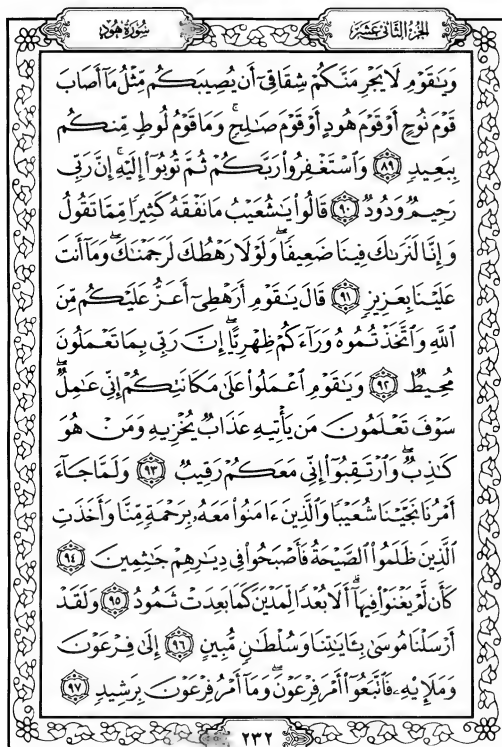 الجزء الثاني عشر
سورة هود
وَيَٰقَوْمِ لَا يَجْرِمَنَّكُمْ شِقَاقِىٓ أَن يُصِيبَكُم مِّثْلُ مَآ أَصَابَ
قَوْمَ نُوحٍ أَوْ قَوْمَ هُودٍ أَوْ قَوْمَ صَٰلِحٍ ۚ وَمَا قَوْمُ لُوطٍ مِّنكُم
بِبَعِيدٍ ٨٩ وَٱسْتَغْفِرُوا۟ رَبَّكُمْ ثُمَّ تُوبُوٓا۟ إِلَيْهِ ۚ إِنَّ رَبِّى
رَحِيمٌ وَدُودٌ ٩٠ قَالُوا۟ يَٰشُعَيْبُ مَا نَفْقَهُ كَثِيرًا مِّمَّا تَقُولُ
وَإِنَّا لَنَرَىٰكَ فِينَا ضَعِيفًا ۖ وَلَوْلَا رَهْطُكَ لَرَجَمْنَٰكَ ۖ وَمَآ أَنتَ
عَلَيْنَا بِعَزِيزٍ ٩١ قَالَ يَٰقَوْمِ أَرَهْطِىٓ أَعَزُّ عَلَيْكُم مِّنَ
ٱللَّهِ وَٱتَّخَذْتُمُوهُ وَرَآءَكُمْ ظِهْرِيًّا ۖ إِنَّ رَبِّى بِمَا تَعْمَلُونَ
مُحِيطٌ ٩٢ وَيَٰقَوْمِ ٱعْمَلُوا۟ عَلَىٰ مَكَانَتِكُمْ إِنِّى عَٰمِلٌ ۖ
سَوْفَ تَعْلَمُونَ مَن يَأْتِيهِ عَذَابٌ يُخْزِيهِ وَمَنْ هُوَ
كَٰذِبٌ ۖ وَٱرْتَقِبُوٓا۟ إِنِّى مَعَكُمْ رَقِيبٌ ٩٣ وَلَمَّا جَآءَ
أَمْرُنَا نَجَّيْنَا شُعَيْبًا وَٱلَّذِينَ ءَامَنُوا۟ مَعَهُۥ بِرَحْمَةٍ مِّنَّا وَأَخَذَتِ
ٱلَّذِينَ ظَلَمُوا۟ ٱلصَّيْحَةُ فَأَصْبَحُوا۟ فِى دِيَٰرِهِمْ جَٰثِمِينَ ٩٤
كَأَن لَّمْ يَغْنَوْا۟ فِيهَآ ۗ أَلَا بُعْدًا لِّمَدْيَنَ كَمَا بَعِدَتْ ثَمُودُ ٩٥ وَلَقَدْ
أَرْسَلْنَا مُوسَىٰ بِـَٔايَٰتِنَا وَسُلْطَٰنٍ مُّبِينٍ ٩٦ إِلَىٰ فِرْعَوْنَ
وَمَلَإِي۟هِۦ فَٱتَّبَعُوٓا۟ أَمْرَ فِرْعَوْنَ ۖ وَمَآ أَمْرُ فِرْعَوْنَ بِرَشِيدٍ ٩٧
٢٣٢